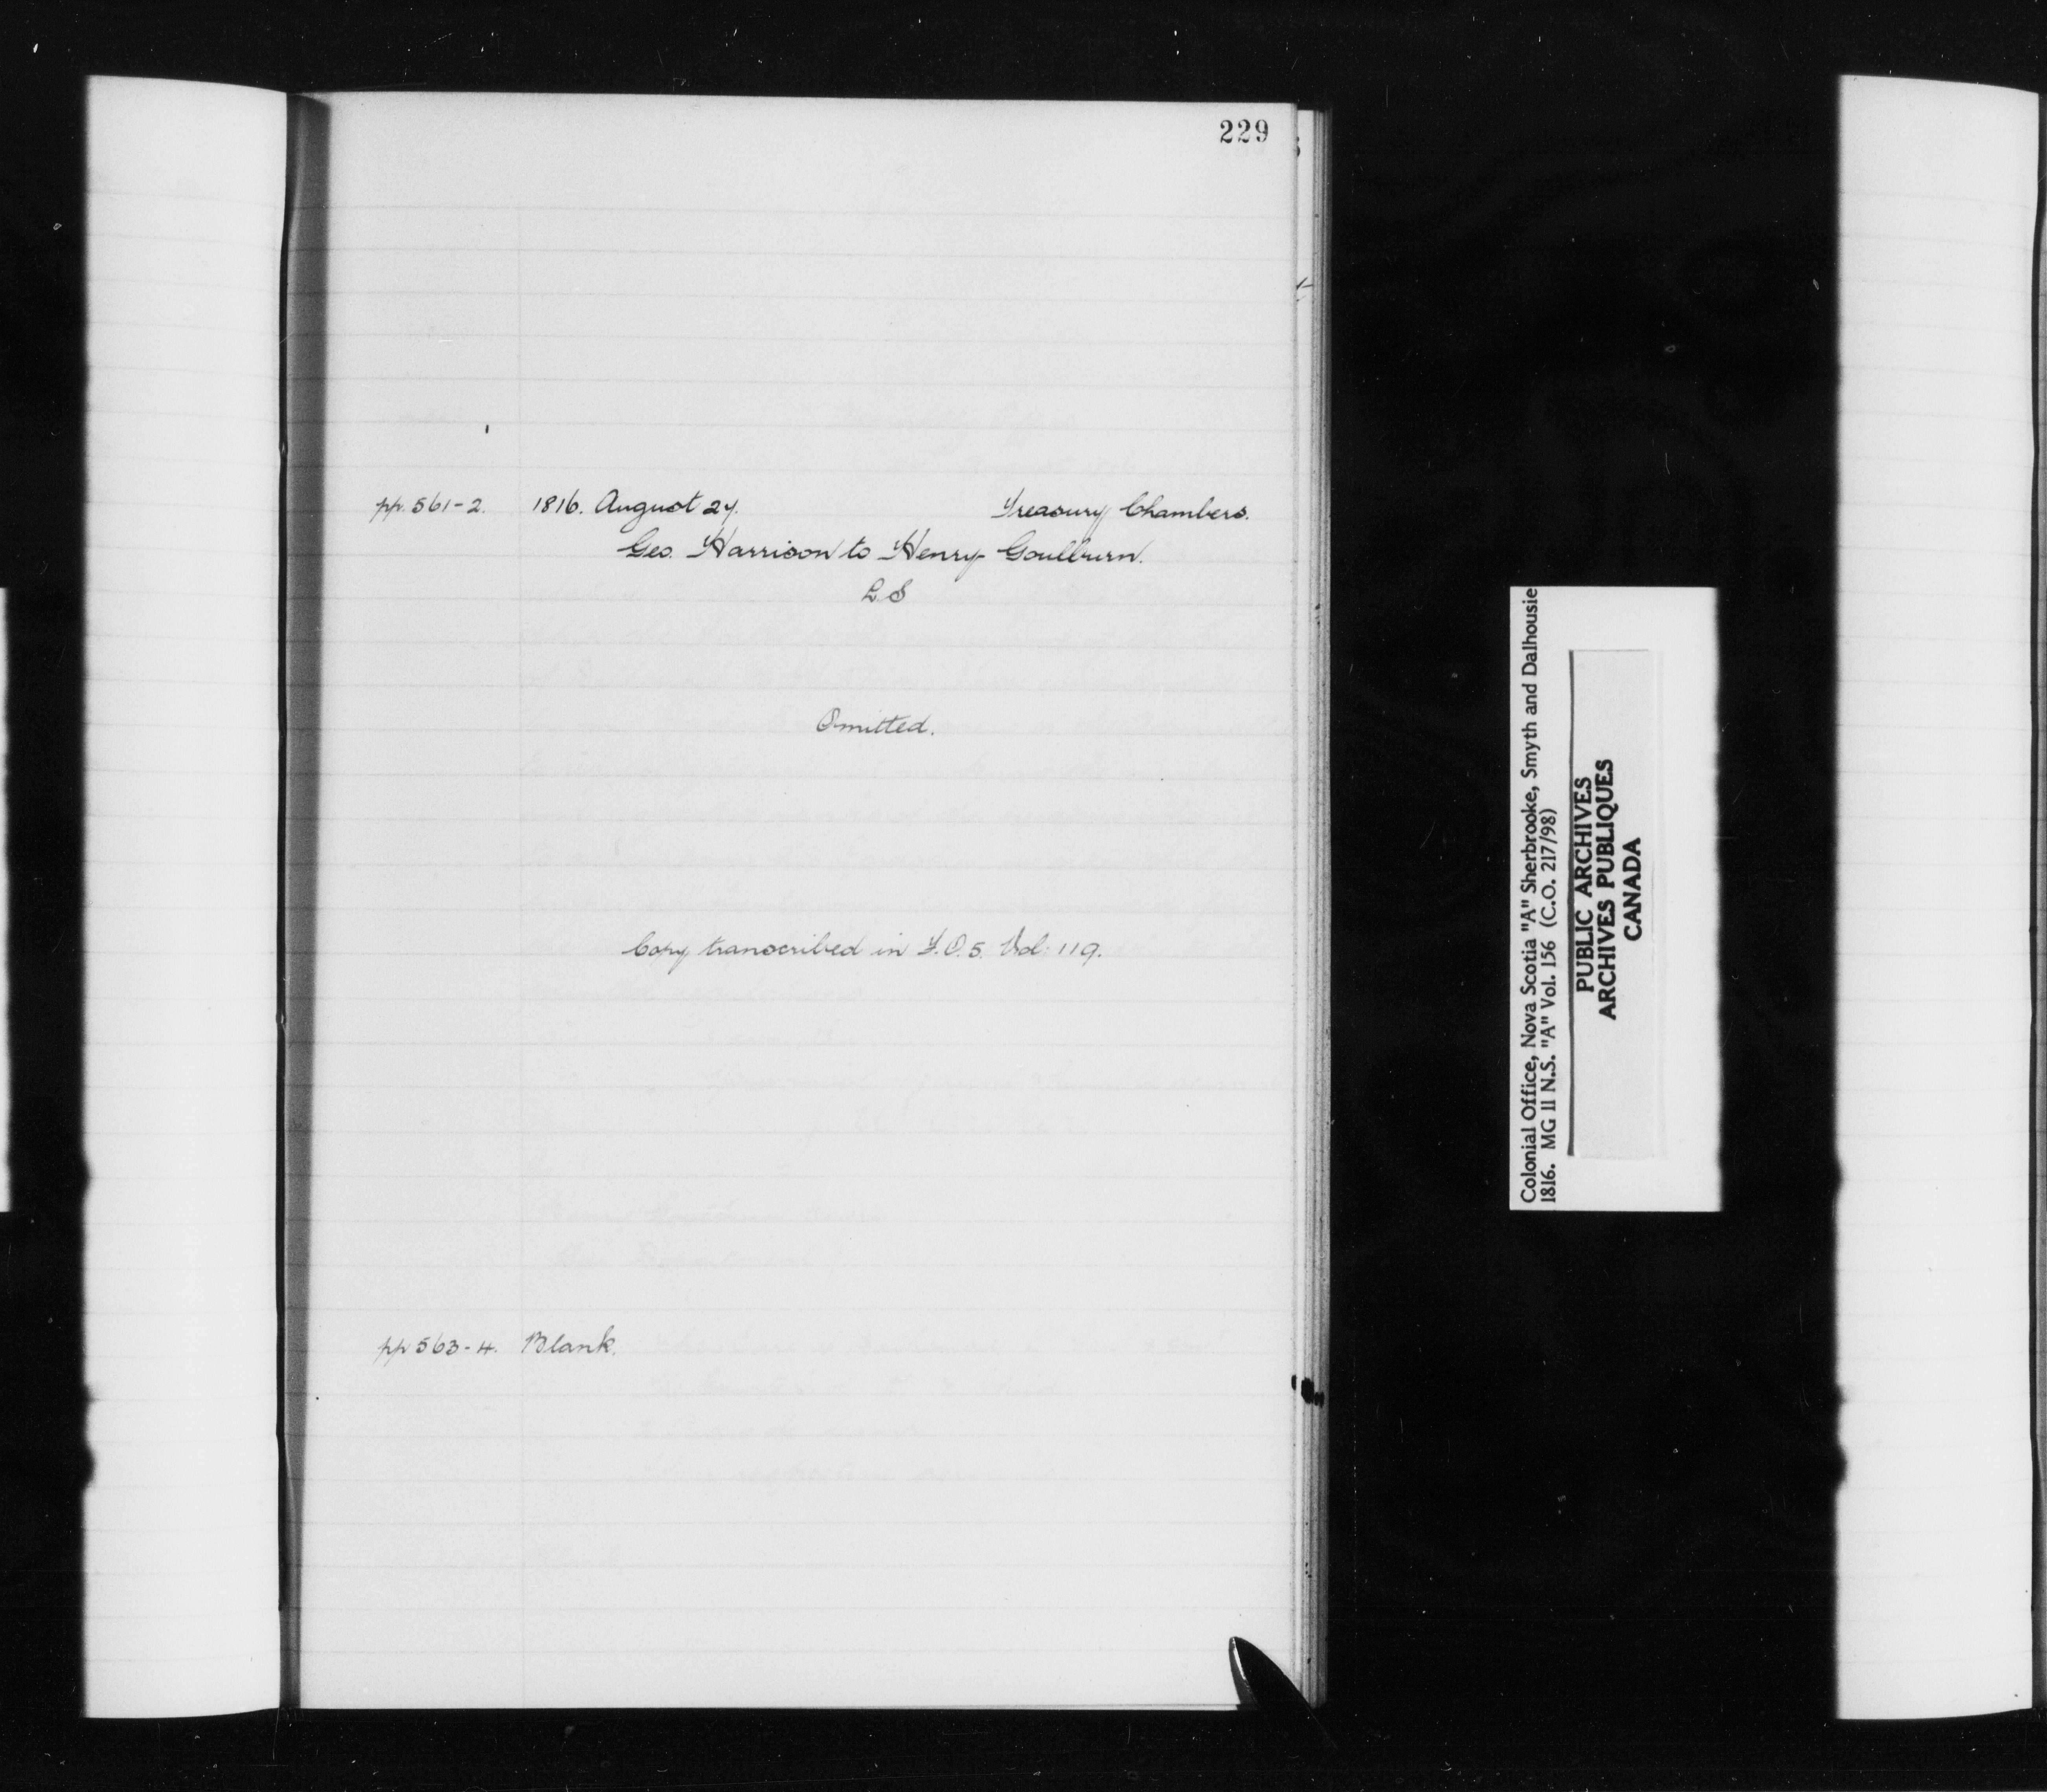 229
pp. 561-2. 1816. August 27. Treasury Chambers.
Geo. Harrison to Henry Goulburn.
L S
Omitted.
Copy transcribed in F.O. 5. Vol: 119.
pp 563-4. Blank.
Colonial Office, Nova Scotia "A" Sherbrooke, Smyth and Dalhousie
1816. MG 11 N.S. "A" Vol. 156 (C.O. 217/98)
PUBLIC ARCHIVES
ARCHIVES PUBLIQUES
CANADA